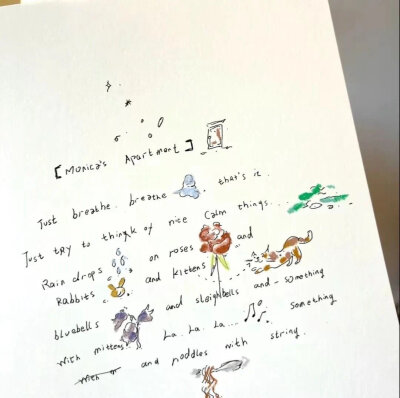 [Monica's Apartment]
Just breathe. breathe that's it.
Just try to think of nice calm things...
Raindrops on roses and
Rabbits and kittens
bluebells and sleighbells and - something
with mittens La. La. La... something
and noddles with string